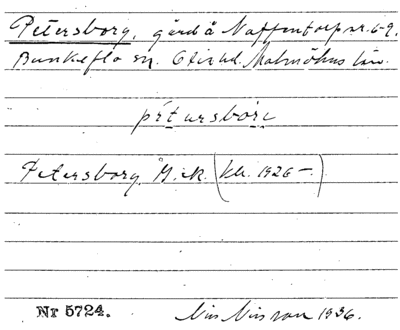 Petersborg, gård å Naffentorp nr. 6-9.
Bunkeflo sn. Oxie hd. Malmöhus län.
pę́tərsbòrj
Petersborg, M.ek. (bl. 1926 –)
Nr 5724.
Nils Nilsson 1936.